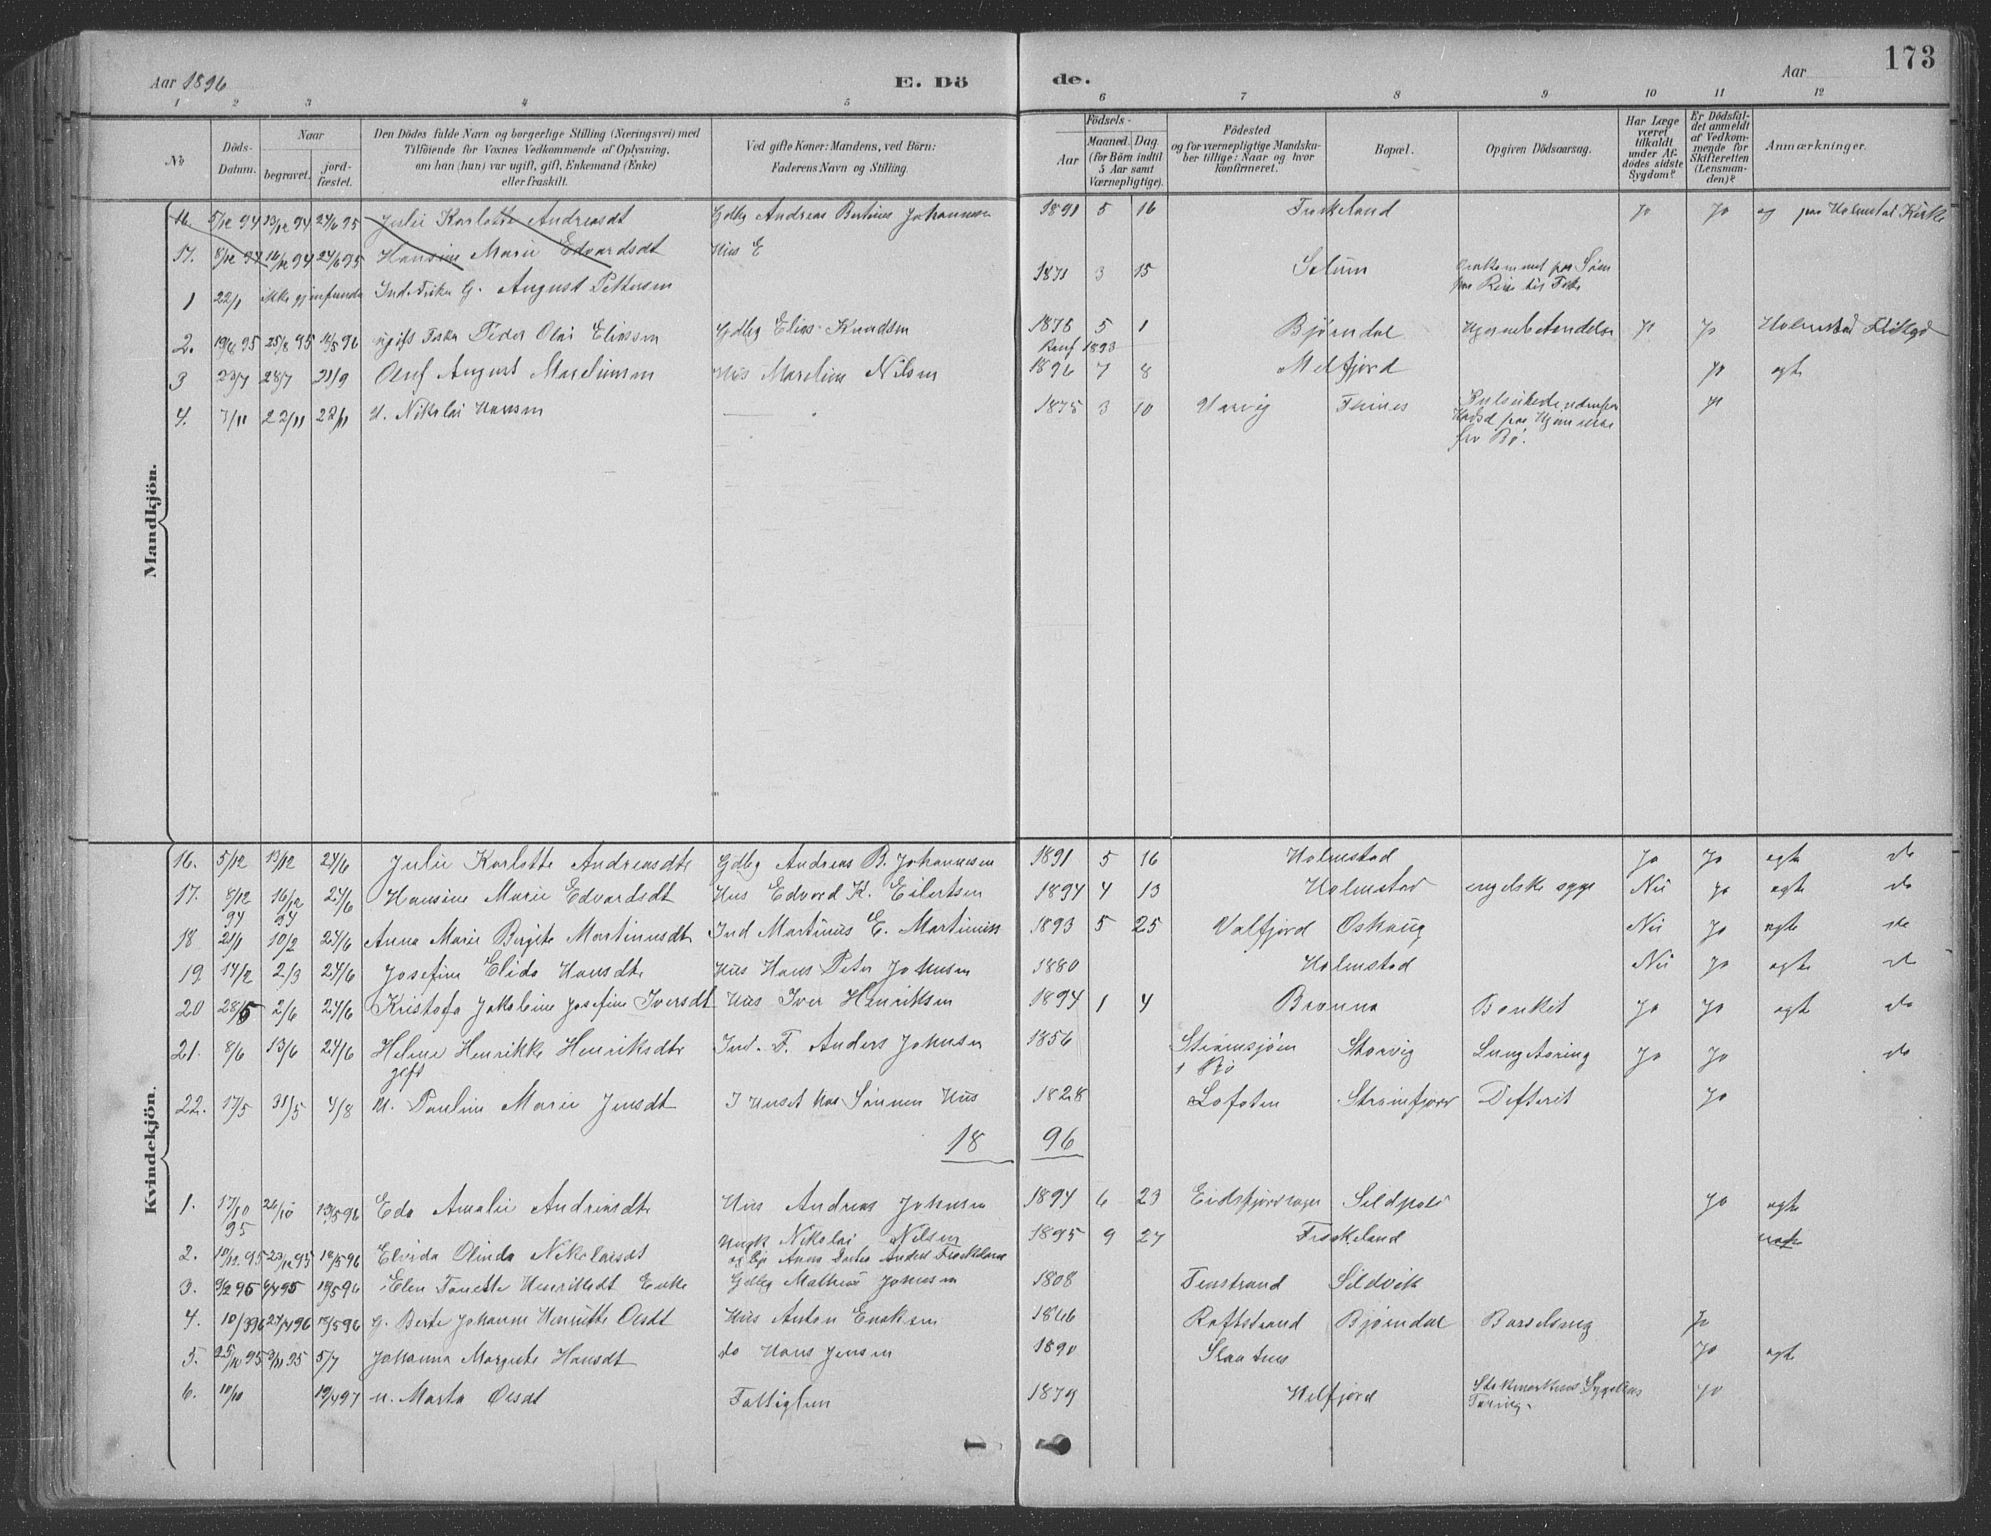 173
Aar 1896
E. Dö de.
Aar
1 2 3 4 5 6 7 8 9 10 11 12
No
Döds-Datum.
Naar
begravet.
jord-fæstet.
Den Dödes fulde Navn og borgerlige Stilling (Næringsvei) med
Tilföiende for Voxnes Vedkommende af Oplysning,
om han (hun) var ugift, gift, Enkemand (Enke)
eller fraskilt.
Ved gifte Koner: Mandens, ved Börn:
Faderens Navn og Stilling.
Födsels-
Aar
Maaned. Dag.
(for Börn indtil
5 Aar samt
Værnepligtige).
Födested
og for værnepligtige Mandska-
ber tillige: Naar og hvor
konfirmeret.
Bopæl.
Opgiven Dödsaarsag.
Har Læge
været
tilkaldt
under Af-
dödes sidste
Sygdom?
Er Dödsfal-
det anmeldt
af Vedkom-
mende for
Skifteretten
(Lensman-
den)?
Anmærkninger.
Mandkjön.
16. 5/12 94 13/12 94 24/6 95 Julie Karlotte Andreasdt Gdbg Andreas Bertinus Johannesen 1891 5 16 Froskeland Ja Ja og paa Holmstad Kirke
17. 8/12 94 16/12 94 24/6 95 Hansine Marie Edvardsdt Hus E
1 22/1 ikke gjenfunden Ind. Fisker G. August Pettersen 1871 3 15 Selum
2. 25/8 95 ugift Fisker Peder Olai Eliassen Gdbg Elias Knudsen 1878 5 1 Bjørndal Hjernebetændelse Ja Ja Holmstad
Konf 1893
3 23/7 28/7 21/9 Oluf August Mareliussen Hus Marelius Nilsen 1896 7 8 Melfjord Ja ægte
4. 7/11 22/11 22/11 U. Nikolai Hansen 1875 3 10 Varvig Ja
fra Bø.
Kvindekjön.
16. 5/12 13/12 24/6 Julie Karlotte Andreasdtr Gdbg Andreas B. Johannesen 1891 5 16 Holmstad Ja Ja ægte do
17. 8/12 94 16/12 94 24/6 Hansine Marie Edvardsdt Hus Edvard K. Eilertsen 1894 4 13 Holmstad engelske syge Nei Ja ægte do
18 21/1 10/2 24/6 Anna Marie Bergite Martinusdt Ind Martinus E. Martinuss 1893 5 25 Valfjord Oshaug Nei Ja ægte do
19 14/2 2/3 24/6 Josefine Elida Hansdtr Hus Hans Peter Johnsen 1880 Holmstad Nei Ja ægte do
20 28/5 2/6 24/6 Kristofa Jakobine Josefine Iversdt Hus Iver Henriksen 1894 1 4 Brønna Bronkit Ja Ja ægte do
21. 8/6 13/6 24/6 Heline Henrikke Henriksdtr Ind. F. Anders Johnsen 1856 Steinsjøen Storvig Lungetæring Ja Ja do
gift i Bø
22. 17/5 31/5 4/8 U. Pauline Marie Jensdt I Huset hos Sønnen Hus 1828 Lofoten Strømfjord Difterit Ja
18 96
1. 17/10 95 26/10 13/5 96 Eda Amalie Andreasdtr Hus Andreas Johnsen 1894 6 23 Sildpold Ja ægte
2. 10/12 95 23/12 95 18/5 96 Elvida Olinda Nikolaisdt Ungk Nikolai Nilsen 1895 9 27 Froskeland uægte
3. 9/2 95 6/4 95 18/5 96 Elen Tonette Henriksdt Enke Gdbg Mathias Johnsen 1808 Finstrand Sildvik
4. 10/3 96 27/4 96 18/5 96 g. Berte Johanne Henriette Olsdt Hus Anton Enoksen 1866 Raftstrand Bjørndal Barselseng Ja
5. 25/10 95 3/11 95 5/7 Johanna Margrete Hansdt do Hans Jensen 1890 Slaatnes Ja ægte
6. 10/10 19/4 97 u. Marta Olsdt Fattiglem 1879 Melfjord Stokmarknes Sygehus Ja
Tæring.